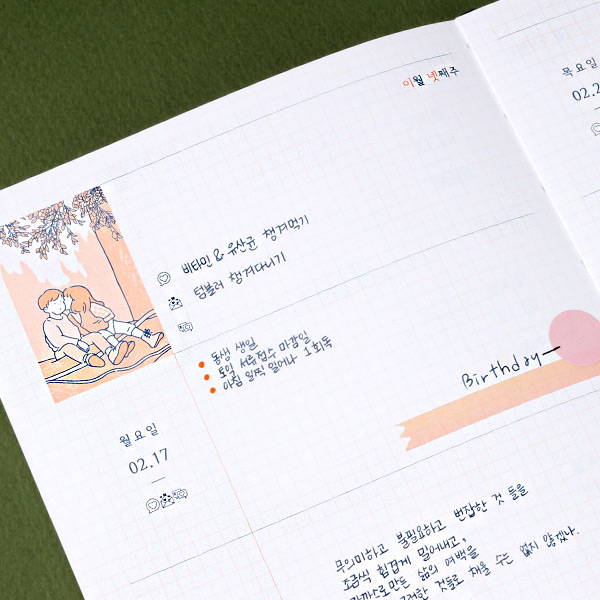 이월 넷째주
비타민 & 유산균 챙겨먹기
텀블러 챙겨다니기
동생 생일
토익 서류접수 마감일
아침 일찍 일어나 1회독
Birthday
월요일
02.17
목요일
02.2
무의미하고 불필요하고 번잡한 것 들을
조금씩 힘겹게 밀어내고,
만든 삶의 여백을
것들로 채울 수는 없지 않겠나.